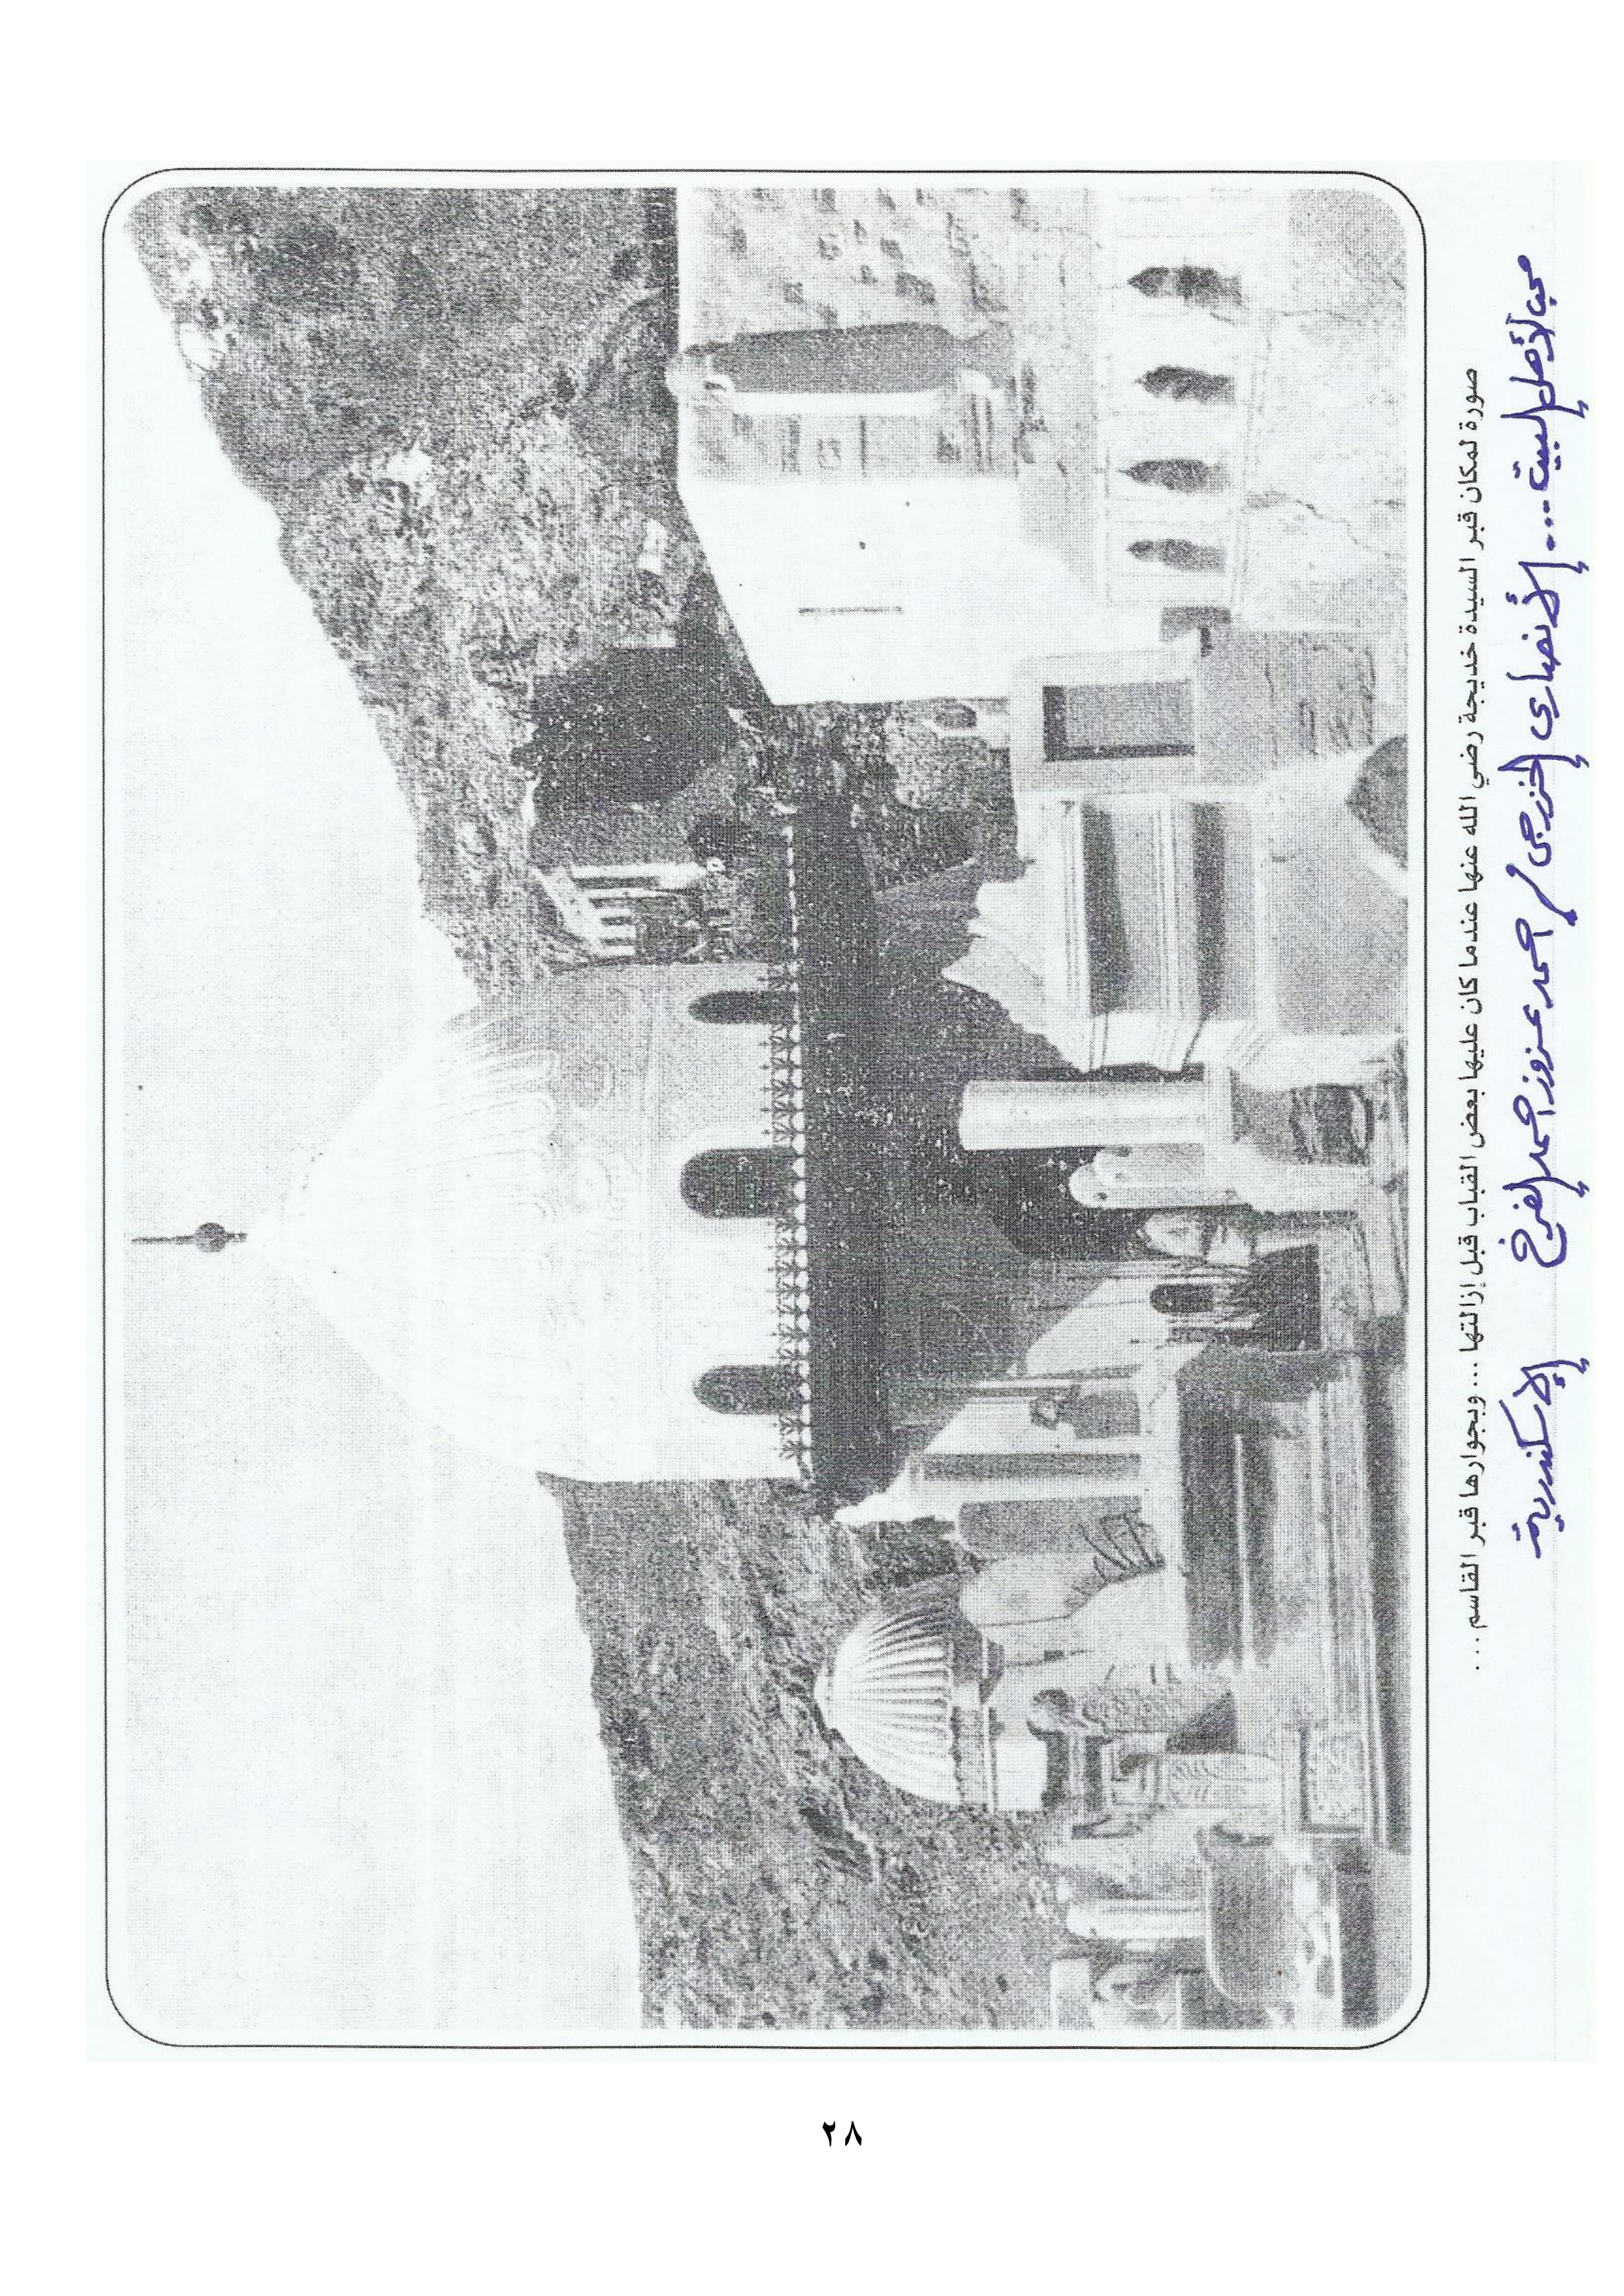 صورة لمكان قبر السيدة خديجة رضي الله عنها عندما كان عليها بعض القباب قبل إزالتها ... وبجوارها قبر القاسم ...
محب لأهل البيت ... الأنصاري الخزرجي / أحمد عزوز أحمد الفرخ الإسكندرية
٢٨